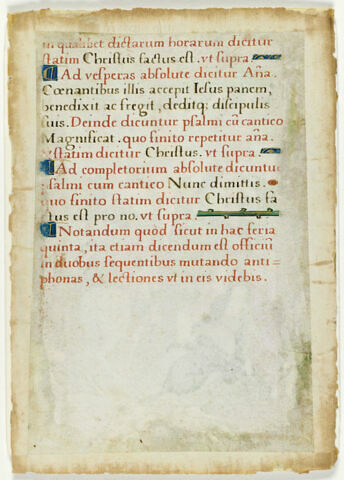 in qualibet dictarum horarum dicitur
statim Christus factus est. vt supra
Ad vesperas absolute dicitur Aña.
Cœnantibus illis accepit Iesus panem,
benedixit ac fregit, deditq; discipulis
suis. Deinde dicuntur psalmi cũ cantico
Magnificat. quo finito repetitur aña.
& statim dicitur Christus. vt supra.
Ad completorium absolute dicuntur
psalmi cum cantico Nunc dimittis.
quo finito statim dicitur Christus fa
ctus est pro no. vt supra
Notandum quòd sicut in hac feria
quinta, ita etiam dicendum est officiũ
in duobus sequentibus mutando anti=
phonas, & lectiones vt in eis videbis.